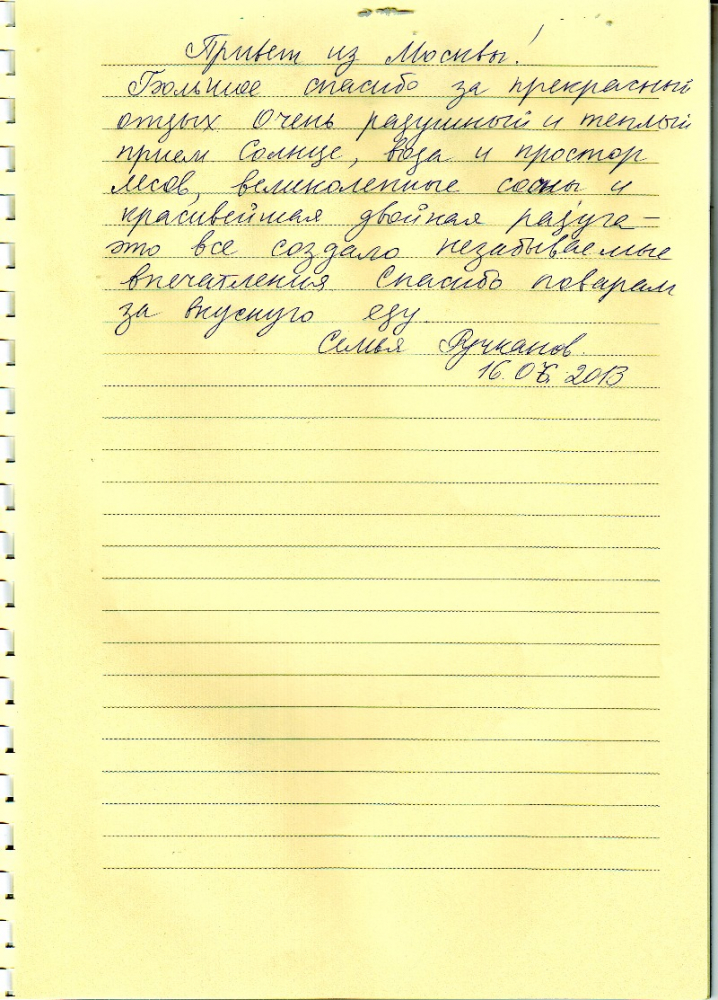 Привет из Москвы!
Большое спасибо за прекрасный
отдых Очень радушный и теплый
прием Солнце, вода и простор
лесов, великолепные сосны и
красивейшая двойная радуга –
это все создало незабываемые
впечатления Спасибо поварам
за вкусную еду.
Семья Ручкановых.
16.06.2013